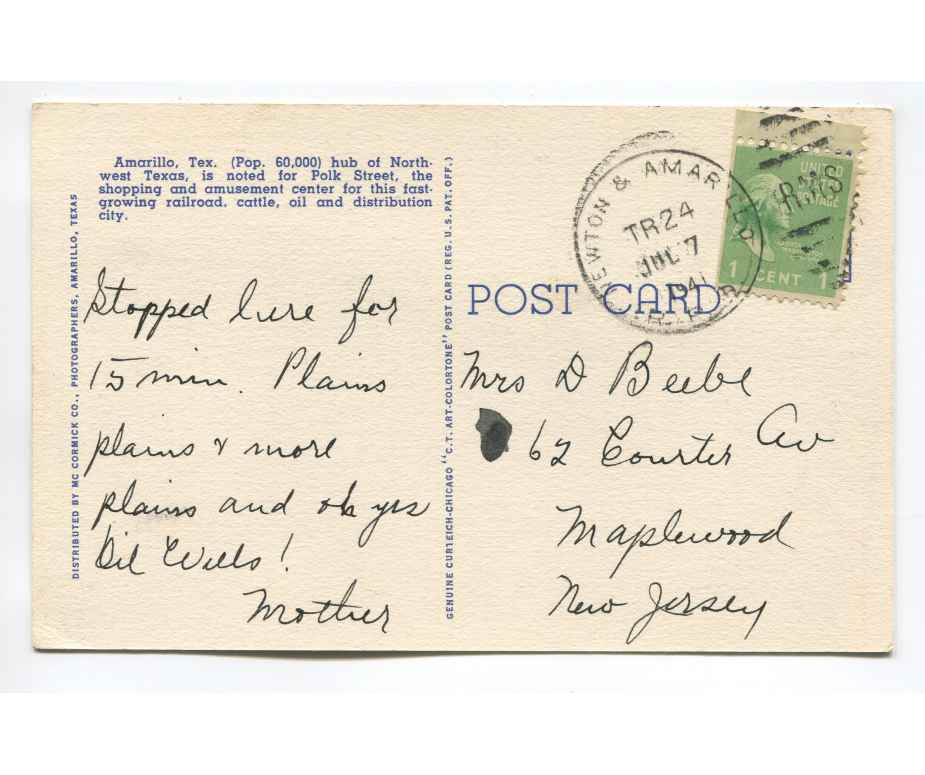 Amarillo, Tex. (Pop. 60,000) hub of North-
west Texas, is noted for Polk Street, the
shopping and amusement center for this fast-
growing railroad, cattle, oil and distribution
city.
Stopped here for
15 min. Plains
plains & more
plains and oh yes
Oil Wells!
Mother
DISTRIBUTED BY MC CORMICK CO., PHOTOGRAPHERS, AMARILLO, TEXAS
GENUINE CURTEICH-CHICAGO "C.T. ART-COLORTONE" POST CARD (REG. U.S. PAT. OFF.)
POST CARD
EWTON & AMAR
TR24
JUL 7
1941
R.M.S
UNITED
STATES
POSTAGE
1 CENT 1
Mrs D Beebe
62 Courter Av
Maplewood
New Jersey